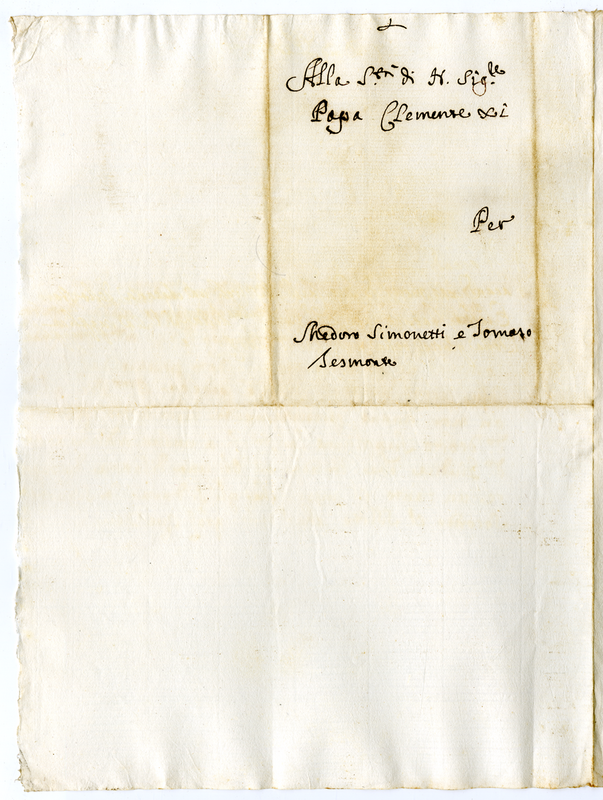 Alla S.tà di N. Sig.re
Papa Clemente XI
Per
Medoro Simonetti e Tomaso
Tesmonte